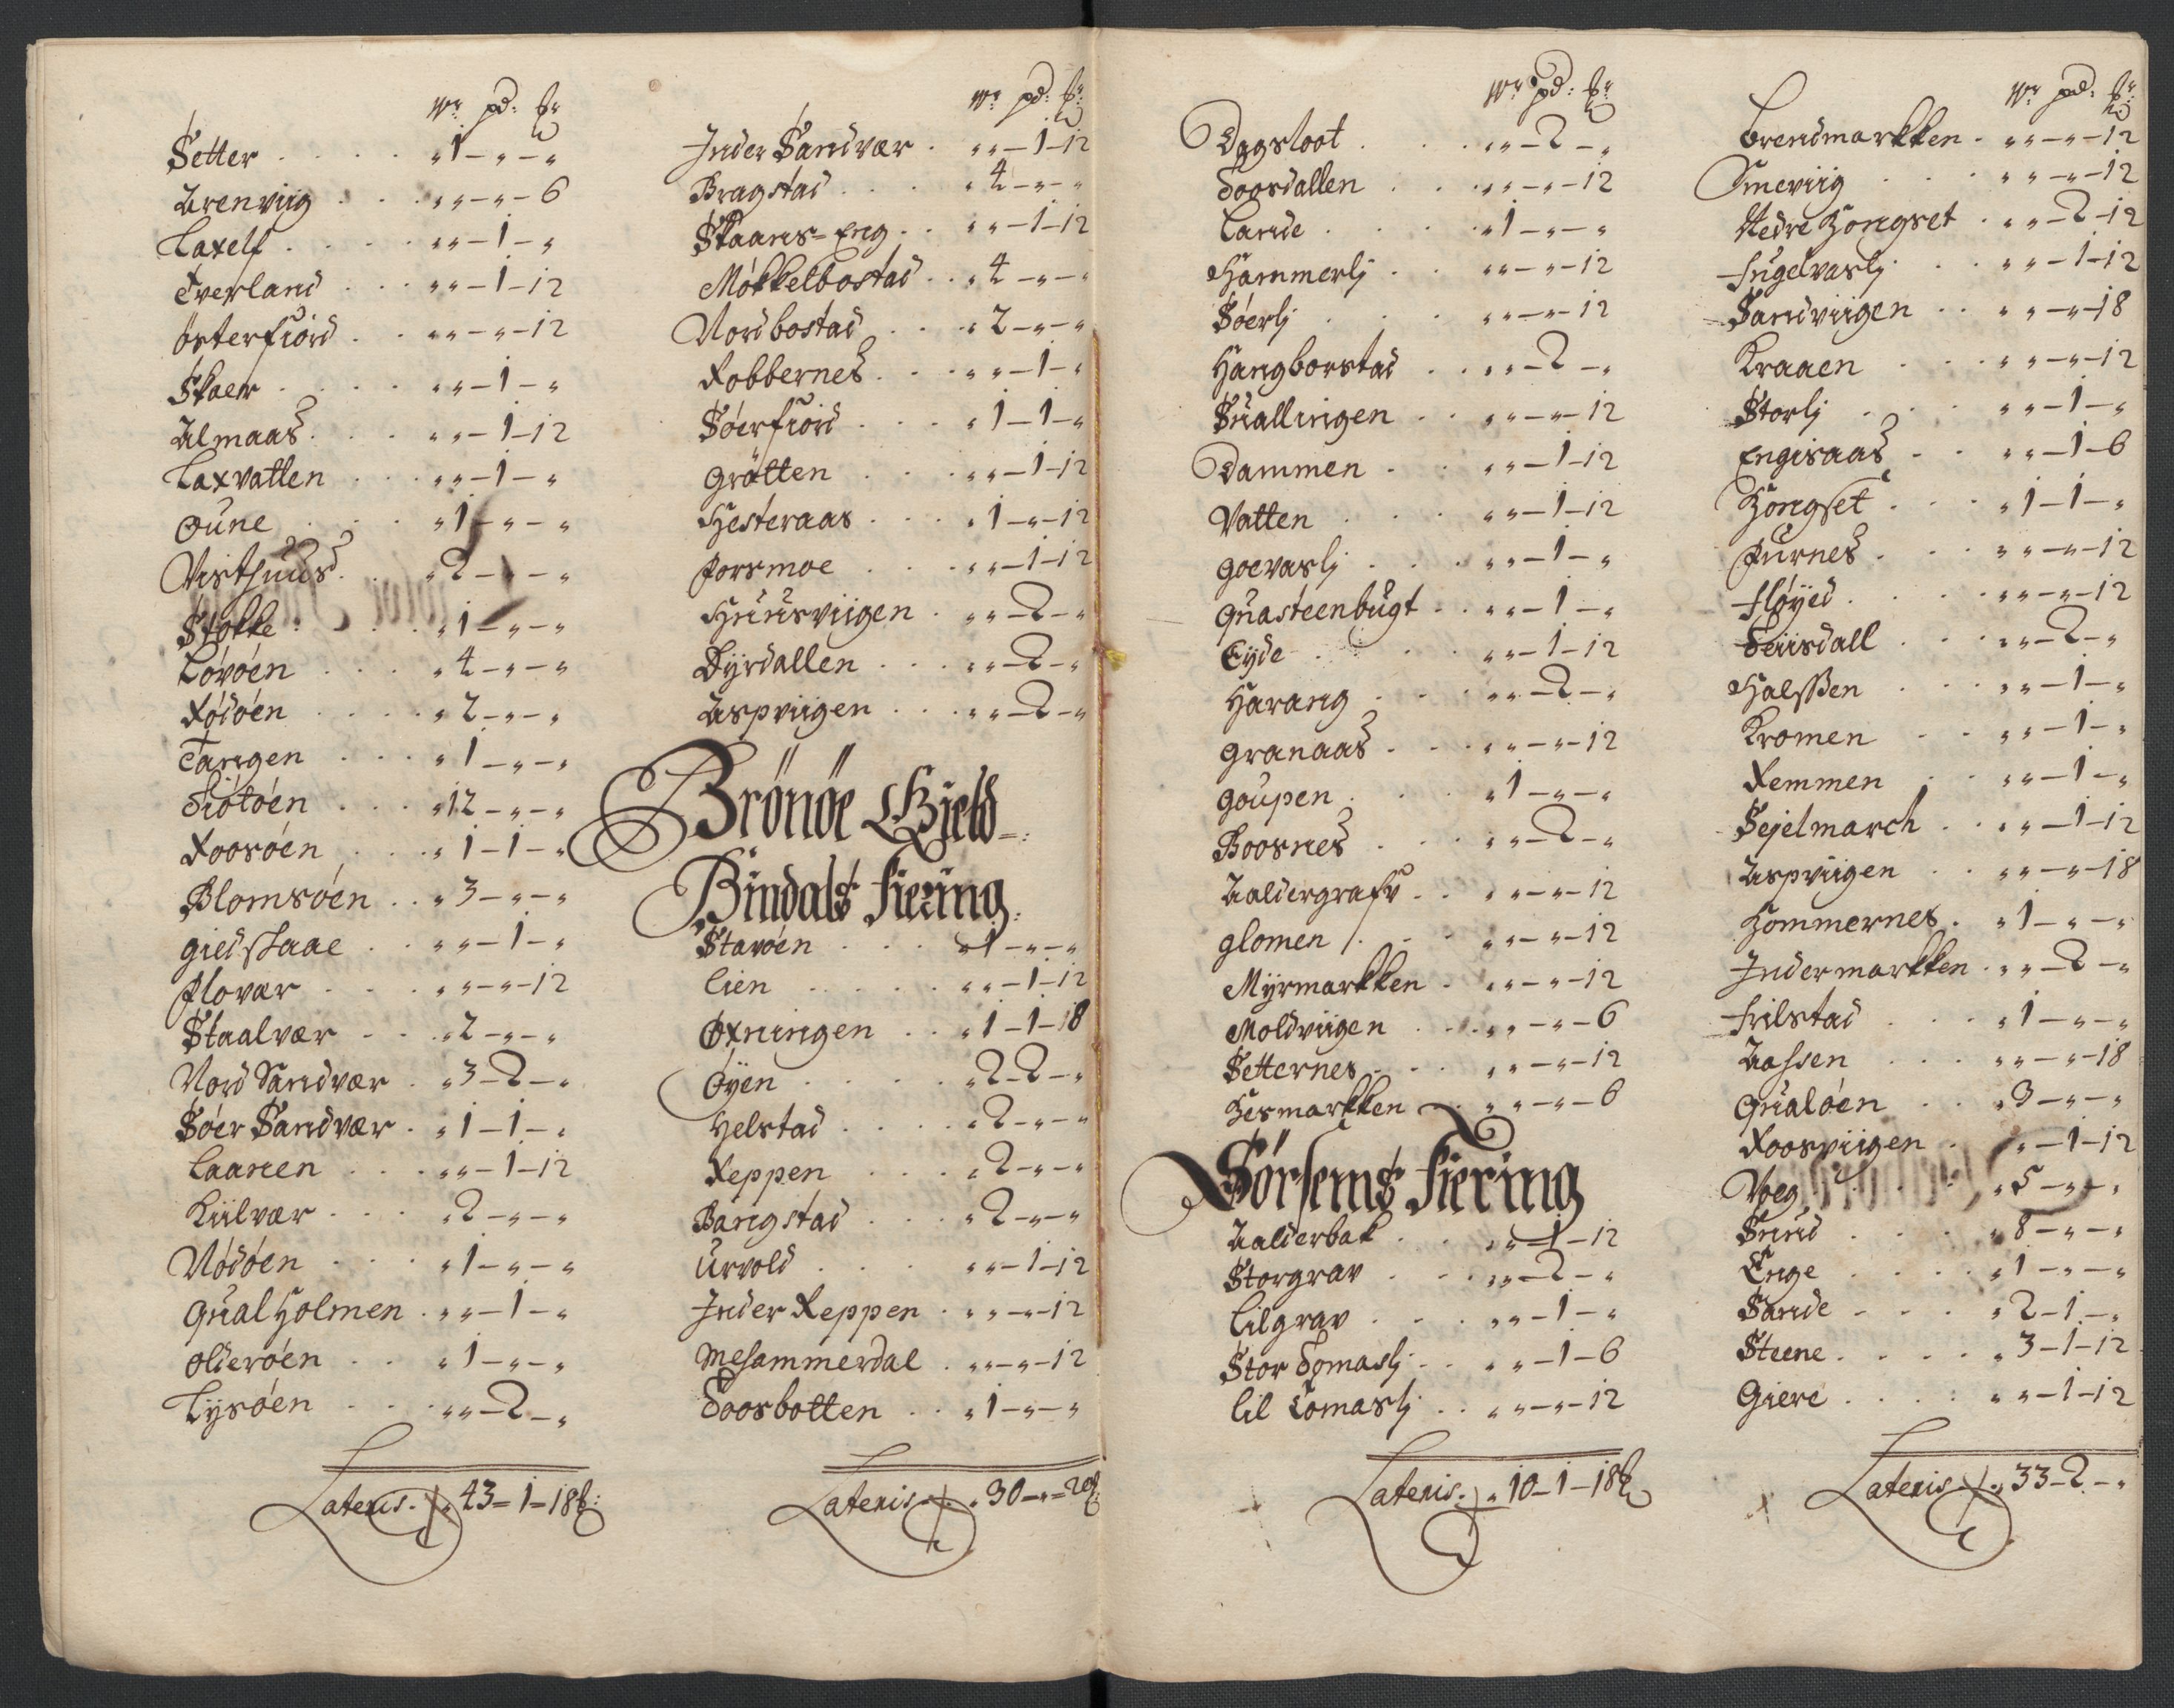 Wr pd: ℔r
Setter . . . . „ 1 – „ – „
Urenviig . . . „ „ – „ – 6
Laxelf . . . . „ „ – 1 – „
Tverland . . . „ „ – 1 – 12
Østerfiord . . „ „ – „ – 12
Skaer . . . . „ „ – 1 – „
Almaas . . . „ „ – 1 – 12
Laxvatten . . . „ „ – 1 – „
Oune . . . „ 1 – „ – „
Visthuus . . „ 2 – „ – „
Stokke . . . . „ 1 – „ – „
Løvøen . . . „ 4 – „ – „
Rødøen . . . . „ 2 – „ – „
Tangen . . . „ 1 – „ – „
Tiøtøen . . . „ 12 – „ – „
Roosøen . . . „ 1 – 1 – „
Blomsøen . . „ 3 – „ – „
Giedskaae . . „ „ – 1 – „
Flovær . . . „ „ – „ – 12
Staalvær . . . „ 2 – „ – „
Nord Sandvær . „ 3 – 2 – „
Søer Sandvær . „ 1 – 1 – „
Laanen . . . „ „ – 1 – 12
Kiilvær . . . „ 2 – „ – „
Nødøen . . . „ 1 – „ – „
Qualholmen . „ „ – 1 – „
Olderøen . . „ 1 – „ – „
Lysøen . . . „ „ – 2 – „
Lateris . „ 43 – 1 – 18 ℔:
Wr pd: ℔r
Inder Sandvær . „ „ – 1 – 12
Bragstad . . . „ 4 – „ – „
Skaans-Eng . . „ „ – 1 – 12
Møkkelbostad . . „ 4 – „ – „
Nordbostad . . . „ 2 – „ – „
Robbernes . . . „ „ – 1 – „
Søerfiord . . . „ 1 – 1 – „
Grøtten . . . „ „ – 1 – 12
Hesteraas . . . „ 1 – „ – 12
Forsmoe . . . „ „ – 1 – 12
Huusviigen . „ „ – 2 – „
Dyrdallen . . . „ „ – 2 – „
Aspviigen . . . „ „ – 2 – „
Brönöe Gield
Bindals Fiering
Stavøen . . . „ 1 – „ – „
Lien . . . . . „ „ – 1 – 12
Øxningen . . „ 1 – 1 – 18
Øyen . . . . . „ 2 – 2 – „
Helstad . . . . „ 2 – „ – „
Reppen . . . „ 2 – „ – „
Bangstad . . . „ 2 – „ – „
Urvold . . . „ „ – 1 – 12
Inder Reppen . „ „ – „ – 12
Mesammerdal . „ „ – „ – 12
Toosbotten . . „ 1 – „ – „
Lateris . „ 30 – „ – 20 ℔
Wr pd: ℔r
Dagsloot . . . „ „ – 2 – „
Toosdallen . . . „ „ – „ – 12
Lande . . . . „ 1 – „ – „
Hammerlj . . „ „ – „ – 12
Søerlj . . . „ „ – „ – 12
Hangborstad . . „ „ – 2 – „
Suallingen . . „ „ – „ – 12
Dammen . . „ „ – 1 – 12
Vatten . . . „ „ – 1 – 12
Goevaslj . . . „ „ – 1 – „
Quasteenbugt . . „ „ – 1 – „
Eyde . . . . „ „ – 1 – 12
Harang . . . „ „ – 2 – „
Granaas . . . „ „ – „ – 12
Goupen . . . „ 1 – „ – „
Boosnes . . . „ „ – 2 – „
Aaldergrafv . . „ „ – „ – 12
Glomen . . . „ „ – „ – 12
Myrmarkken . „ „ – „ – 12
Moldviigen . . „ „ – „ – 6
Setternes . . „ „ – „ – 12
Hesmarkken . „ „ – „ – 6
Sörsems Fiering
Aalderbak . . . „ „ – 1 – 12
Storgrav . . . „ „ – 2 – „
Lilgrav . . . „ „ – 1 – „
Stor Tomaslj . . „ „ – 1 – 6
Lil Tomaslj . . „ „ – „ – 12
Lateris . „ 10 – 1 – 18 ℔
Wr pd: ℔r
Brendmarkken . „ „ – „ – 12
Smeviig . . . „ „ – „ – 12
Nedre Hongset . „ „ – 2 – 12
Fugelvaslj . . „ „ – 1 – 12
Sandviigen . . „ „ – „ – 18
Kraaen . . . „ „ – „ – 12
Storlj . . . „ „ – 1 – „
Engisaas . . „ „ – 1 – 6
Hongset . . . „ 1 – 1 – „
Furnes . . . „ „ – „ – 12
Fløyed . . . . „ „ – „ – 12
Teiisdall . . . „ „ – 2 – „
Halssen . . . „ „ – 1 – „
Kromen . . „ „ – 1 – „
Remmen . . „ „ – 1 – „
Sejelmarch . . „ „ – 1 – 12
Aspviigen . . „ „ – „ – 18
Hommernes . „ 1 – „ – „
Indermarkken . „ „ – 2 – „
Frilstad . . . „ 1 – „ – „
Aassen . . . „ „ – „ – 18
Qualøen . . . „ 3 – „ – „
Roosviigen . „ – 1 – 12
Voeg . . . . „ 5 – „ – „
Sund . . . . „ 8 – „ – „
Enge . . . . „ 1 – „ – „
Sande . . . „ 2 – 1 – „
Steene . . . . „ 3 – 1 – 12
Giere . . . . „ „ – 1 – 12
Lateris . „ 33 – 2 – „